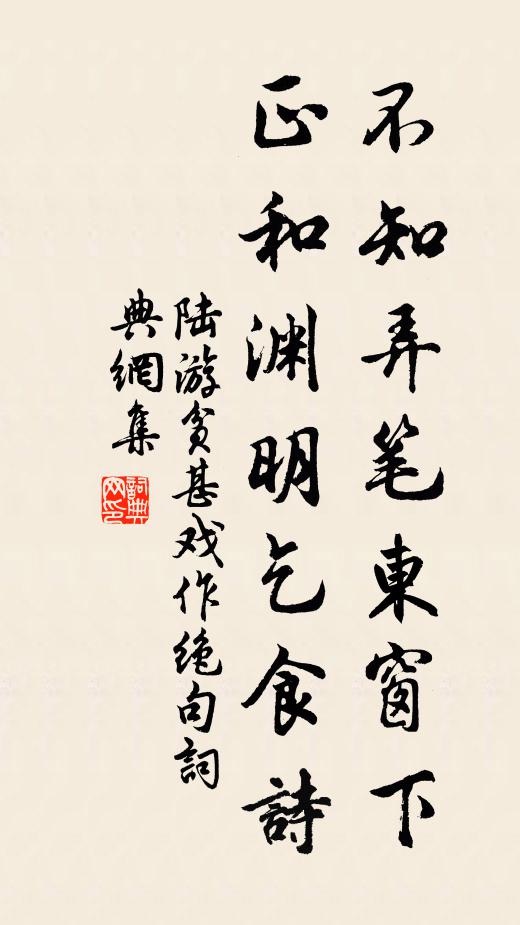 不知弄笔東窗下
正和渊明乞食詩
陆游贫甚戏作绝句詞
典網集
詞典
网印